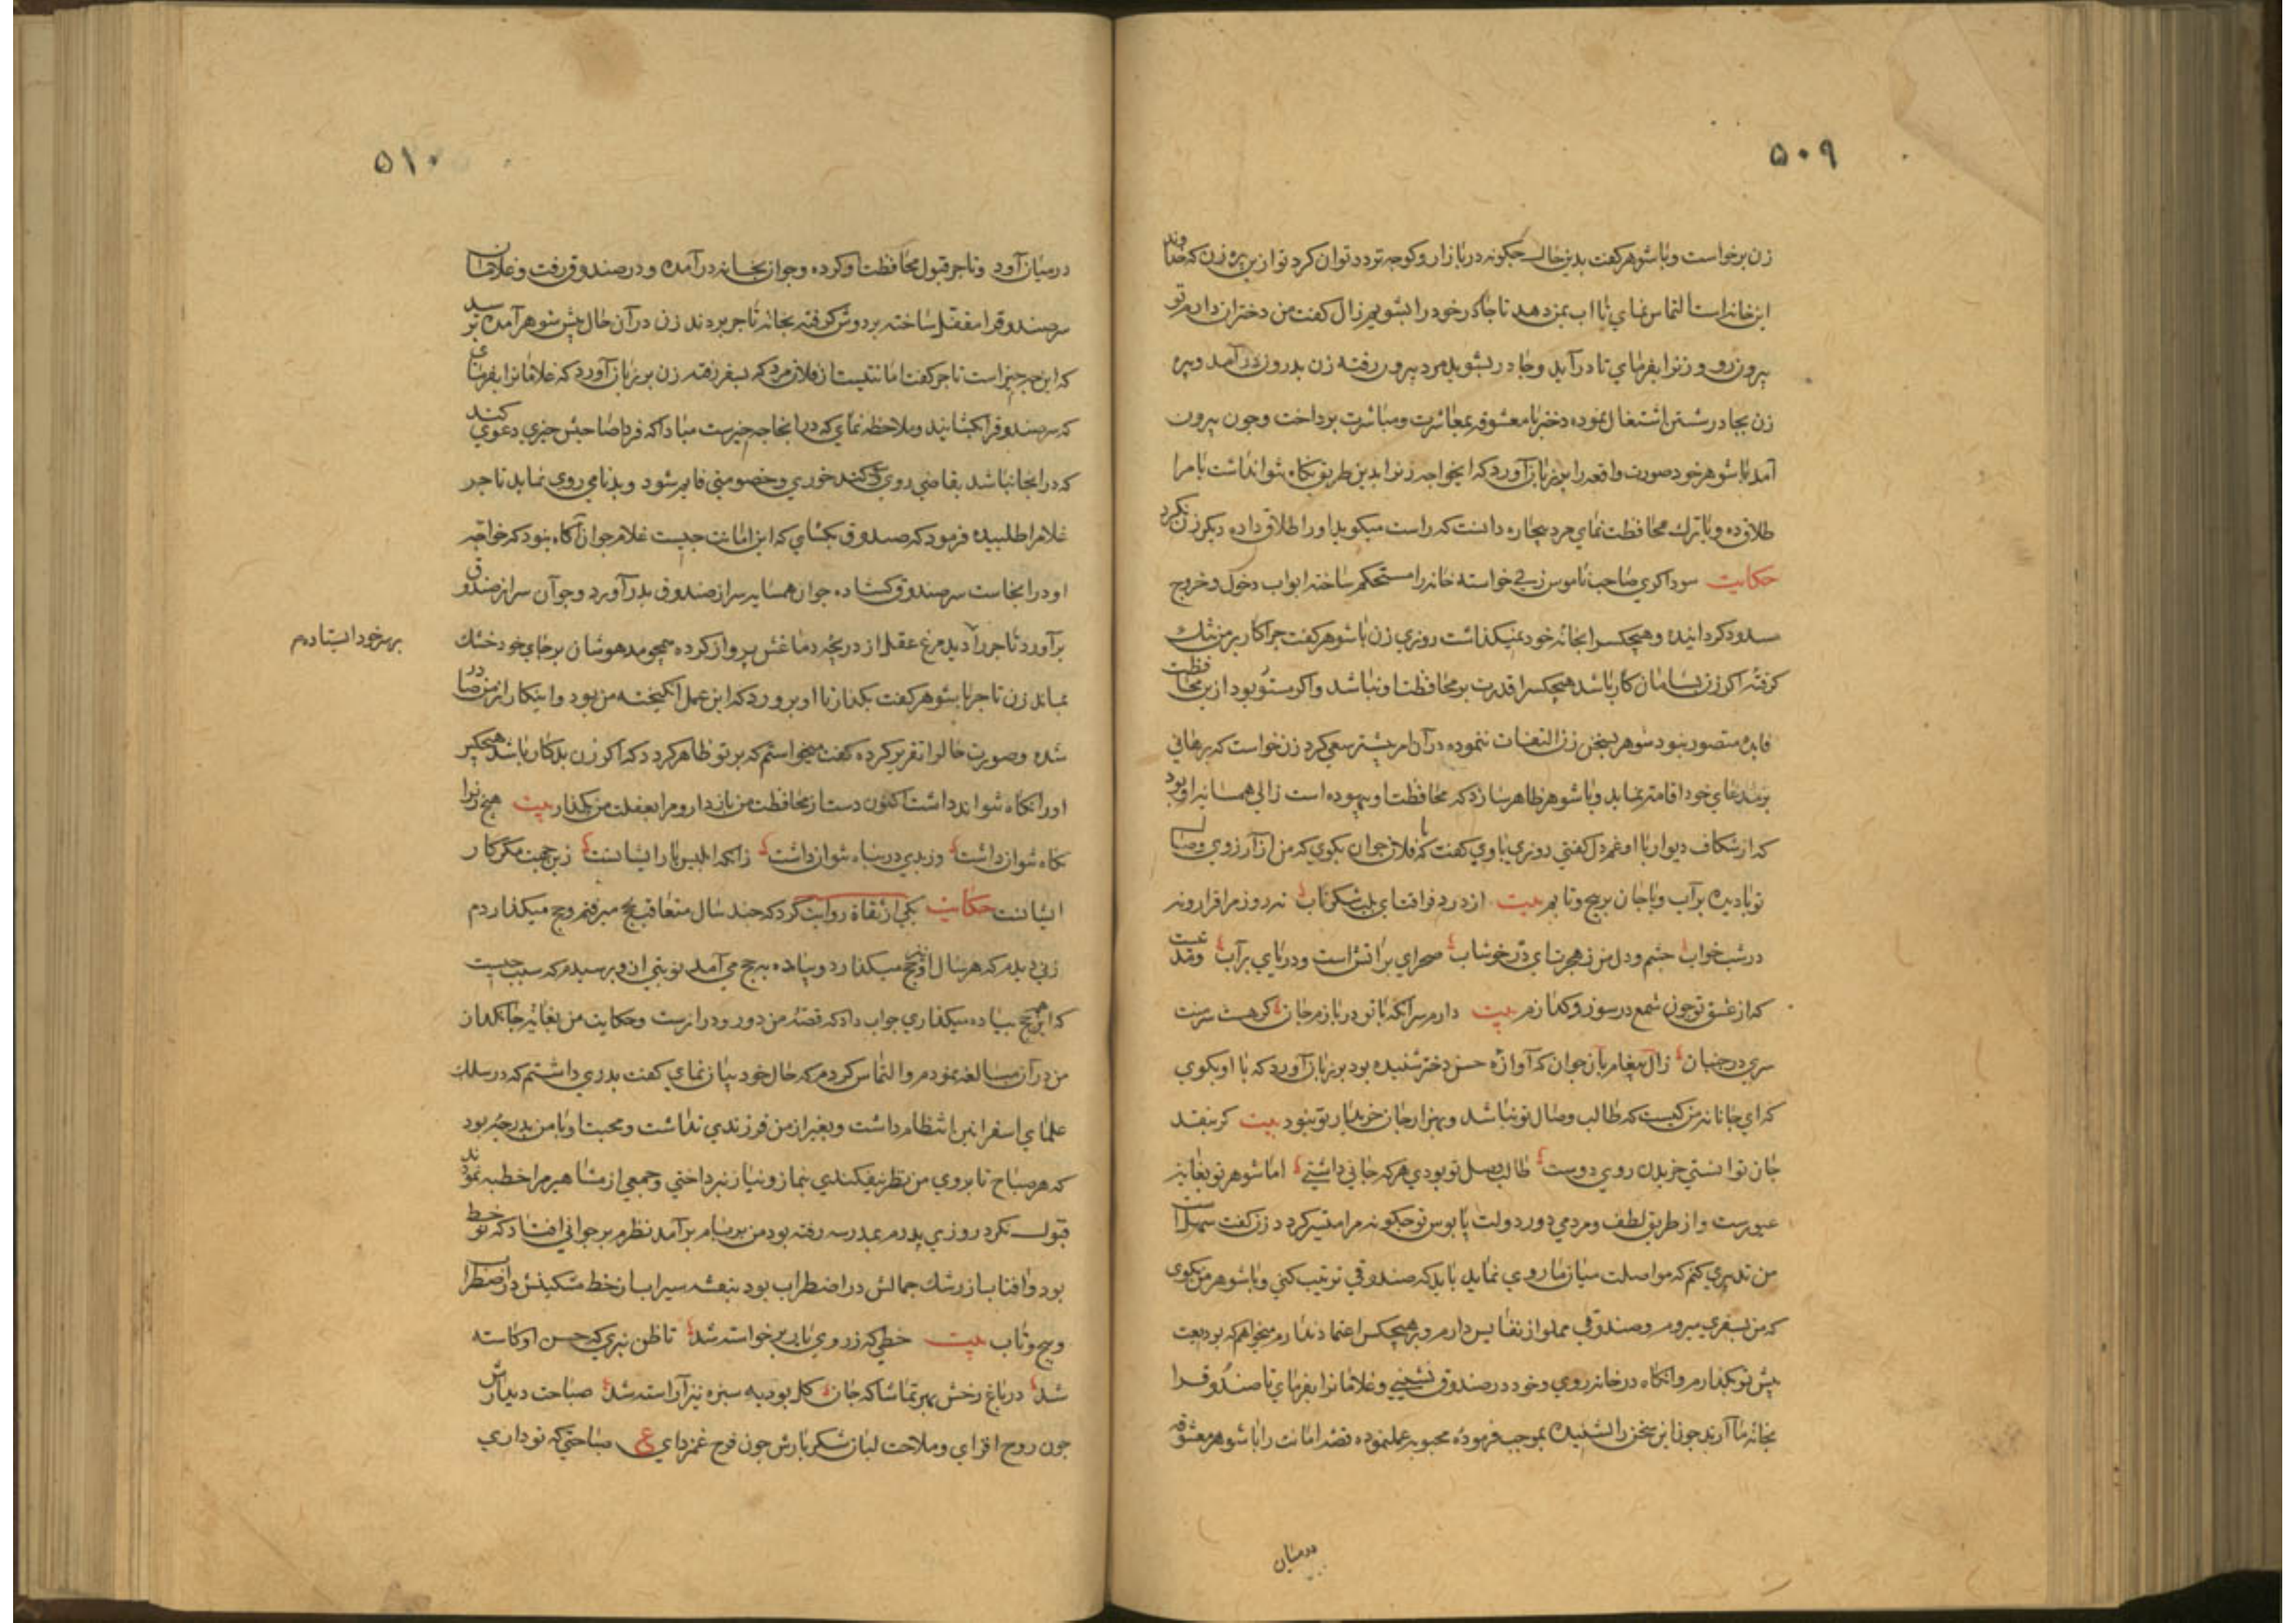 ۵۰۹
زن برخواست و با شوهر گفت بدین حال چگونه در بازار و کوچه تردد توان کرد تو ازین پیره زن که خداوند
این خانه است التماس نمای تا آب بمن دهد تا چادر خود را بشویم زال گفت من دختران دارم تو
بیرون رو و زنرا بفرمای تا درآید و چادر بشوید مرد بیرون رفته زن بدرون درآمد و پیره
زن بچادر شستن اشتغال نموده دختر با معشوقه بمعاشرت و مباشرت پرداخت و چون بیرون
آمد با شوهر خود صورت واقعه را بر زبان آورد که ایخواجه زنرا بدین طریق نگاه نتوان داشت یا مرا
طلاق ده و یا ترک محافظت نمای مرد بیچاره دانست که راست میگوید او را طلاق داده دیگر زن نکرد
حکایت سوداگری صاحب ناموس زنی خواسته خانه را مستحکم ساخته ابواب دخول و خروج
مسدود گردانیده و هیچکسرا بخانه خود نمیگذاشت روزی زن با شوهر گفت چرا کار بر من تنک
گرفته اگر زن بسامان کار باشد هیچکسرا قدرت بر محافظت او نباشد و اگر مستور بود ازین محافظت
فایده متصور نبود شوهر بسخن زن التفات ننموده در آن امر بیشتر سعی کرد زن خواست که برهانی
بر مدعای خود اقامت نماید و با شوهر ظاهر سازد که محافظت او بیهوده است زالی همسایه او بود
که از شکاف دیوار با او غم دل گفتی روزی با وی گفت که با فلان جوان بگوی که من از آرزوی وصال
تو با دیده پر آب و با جان بر پیچ و تابم بیت از درد فراقت ای بلب شکر ناب نه روز مرا قرار و نه
در شب خواب چشم و دل من ز هجرت ای در خوشاب صحرای پر آتش است و دریای پر آب
که از عشق تو چون شمع در سوز و گدازم بیت دارم سر آنکه با تو در بازم جان گر هست سرت
سری در جنبان زال پیغام بآن جوان که آوازه حسن دختر شنیده بود بر زبان آورد که با او بگوی
که ای جانانه من کیست که طالب وصال تو نباشد و بهزار جان خریدار تو نبود بیت گر بنقد
جان توانستی خریدن روی دوست طالب وصل تو بودی هر که جانی داشتی اما شوهر تو بغایت
غیورست و از طریق لطف و مردمی دور دولت پابوس تو چگونه مرا میسر گردد زن گفت سهل است
من تدبیری کنم که مواصلت میان ما روی نماید باید که صندوقی ترتیب کنی و با شوهر من بگوی
که من بسفری میروم و صندوقی مملو از نفایس دارم و بر هیچکس اعتماد ندارم میخواهم که بودیعت
پیش تو بگذارم و آنگاه در خانه روی و خود در صندوق نشینی و غلامانرا بفرمای تا صندوقرا
بخانه ما آرند جوان این سخن را شنیده بموجب فرموده محبوبه عمل نموده قصه امانت را با شوهر معشوقه
در میان
۵۱۰
در میان آورد و تاجر قبول محافظت او کرده و جوان بخانه درآمده و در صندوق رفت و غلامان
سر صندوقرا مقفل ساخته بر دوش گرفته بخانه تاجر بردند زن در آن حال پیش شوهر آمده پرسید
که این چه چیز است تاجر گفت امانتیست از فلان مرد که بسفر رفته زن بر زبان آورد که غلامانرا بفرمای
که سر صندوقرا بگشایند و ملاحظه نمای که در اینجا چه چیزست مبادا که فردا صاحبش چیزی دعوی کند
که در اینجا نباشد بقاضی روی کند خواری و خصومتی قایم شود و بدنامی روی نماید تاجر
غلامرا طلبیده فرمود که صندوق بگشای که این امانت چیست غلام جوان آگاه نبود که خواجه
او در اینجاست سر صندوق گشاده جوان همسایه سر از صندوق بدر آورد و جوان سر از صندوق
برآورد تاجر را دید مرغ عقل از دریچه دماغش پرواز کرده همچو مدهوشان بر جای خود خشک
بر سر خود ایستاده م
بماند زن تاجر با شوهر گفت بگذار تا او برود که این عمل انگیخته من بود و اینکار از من صادر
شده و صورت حالرا تقریر کرده گفت میخواستم که بر تو ظاهر گردد که اگر زن بدکار باشد هیچکس
او را نگاه نتواند داشت اکنون دست از محافظت من باز دار و مرا بعفت من بگذار بیت هیچ زنرا
نگاه نتوان داشت وز بدی در پناه نتوان داشت زانکه ابلیس یار ایشانست زین جهت مکر کار
ایشانست حکایت یکی از ثقاة روایت کرد که چند سال متعاقب بحج میرفتم و حج میگذاردم
زنی دیدم که هر سال او نیز حج میگذارد و پیاده به حج می آمد نوبتی از وی پرسیدم که سبب چیست
که این حج پیاده میگذاری جواب داد که قصه من دور و درازست و حکایت من بغایت جانگداز
من در آن مبالغه نمودم و التماس کردم که حال خود بیان نمای گفت پدری داشتم که در سلک
علمای اسفراین انتظام داشت و بغیر از من فرزندی نداشت و محبت او با من بدرجه بود
که هر صباح تا بروی من نظر نیفکندی بنماز و نیاز نپرداختی و جمعی از مشاهیر مرا خطبه نمودند
قبول نکرد روزی پدرم بمدرسه رفته بود من بر بام برآمدم نظرم بر جوانی افتاد که نو خط
بود و آفتاب از رشک جمالش در اضطراب بود بنفشه سیراب از خط مشکینش در اضطراب
و پیچ و تاب بیت خطی که ز روی یار برخواسته شد تا ظن نبری که حسن او کاسته
شد در باغ رخش بهر تماشا که جان گل بود به سبزه نیز آراسته شد صباحت دیدارش
چون روح افزای و ملاحت لبان شکر بارش چون فرح غمزدای ع صباحتی که تو داری